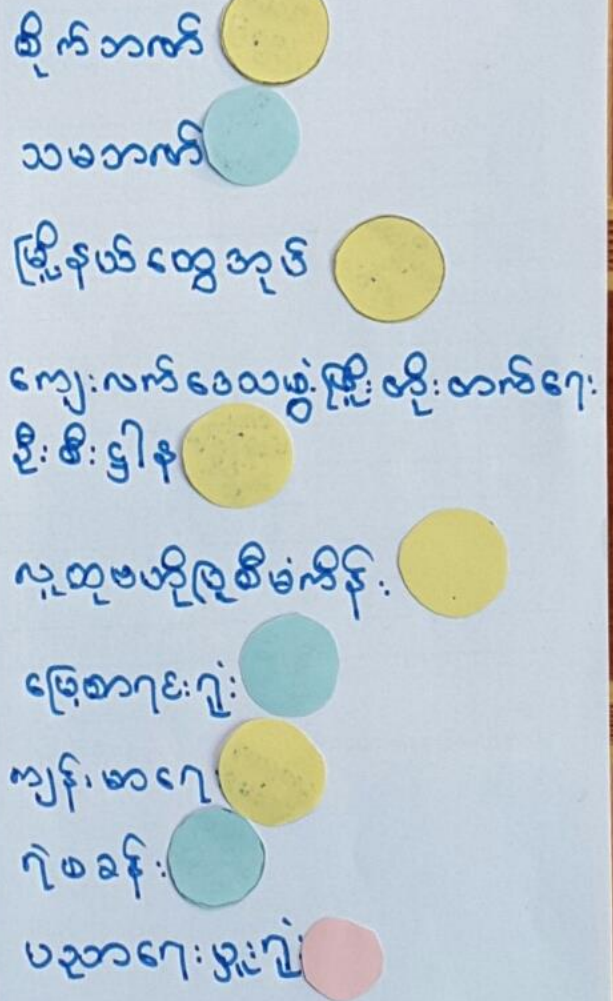 စိုက်ဘဏ်
သမဘဏ်
မြို့နယ်ထွေအုပ်
ကျေးလက်ဒေသဖွံ့ဖြိုးတိုးတက်ရေး
ဦးစီးဌါန
လူထုဗဟိုပြုစီမံကိန်း
မြေစာရင်းရုံး
ကျန်းမာရေ
ရဲစခန်း
ပညာရေးမှူးရုံး